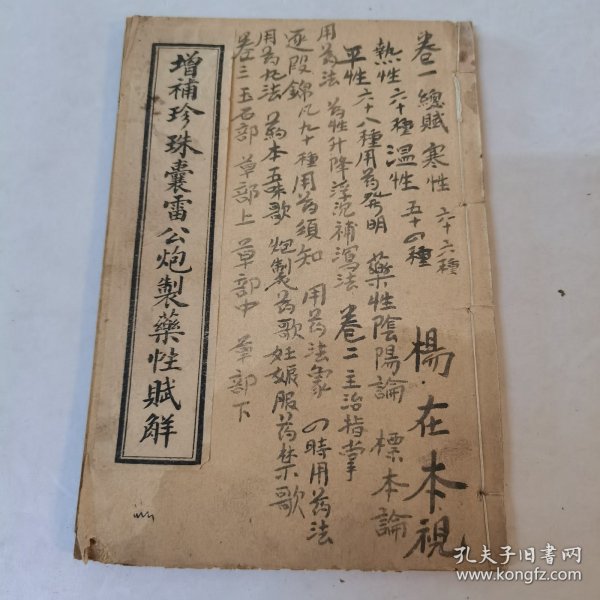 卷一 總賦 寒性 六十六種
熱性 六十種 温性 五十四種
楊·在本視
平性六十八種用药發明 藥性陰陽論 標本論
用药法 药性升降浮沉補瀉法 卷二 主治指掌
逐段錦凡九十種用药須知 用药法象 四時用药法
用药九法 药本五味歌 炮製药歌妊娠服药禁歌
卷三玉石部 草部上 草部中 草部下
增補珍珠囊雷公炮製藥性賦解
孔夫子旧书网
www.kongfz.com